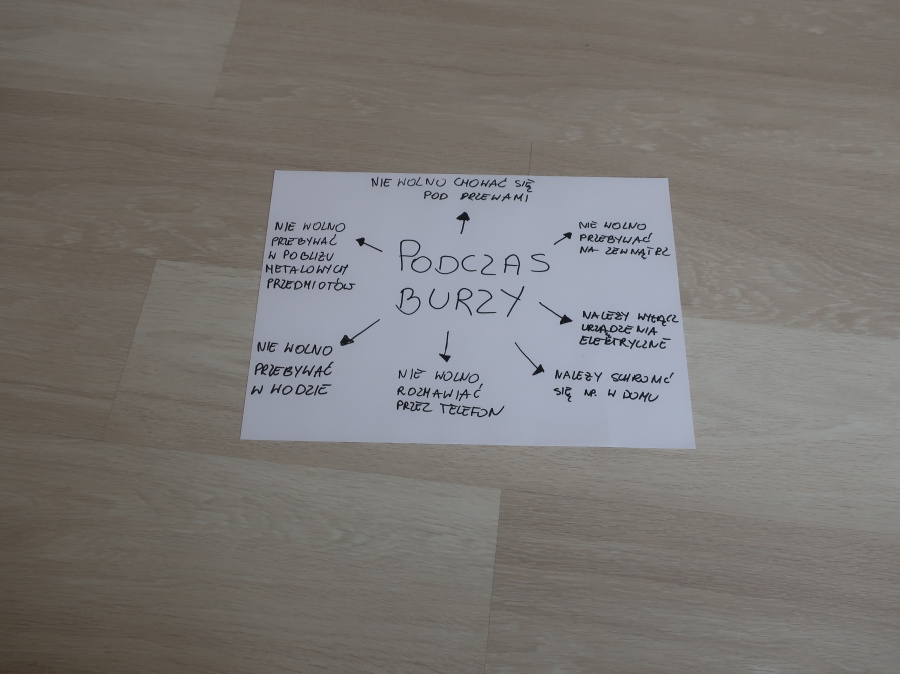 NIE WOLNO CHOWAĆ SIĘ
POD DRZEWAMI
NIE WOLNO
PRZEBYWAĆ
W POBLIŻU
METALOWYCH
PRZEDMIOTÓW
NIE WOLNO
PRZEBYWAĆ
NA ZEWNĄTRZ
PODCZAS
BURZY
NALEŻY WYŁĄCZ
URZĄDZENIA
ELEKTRYCZNE
NIE WOLNO
PRZEBYWAĆ
W WODZIE
NIE WOLNO
ROZMAWIAĆ
PRZEZ TELEFON
NALEŻY SCHRONIĆ
SIĘ NP. W DOMU